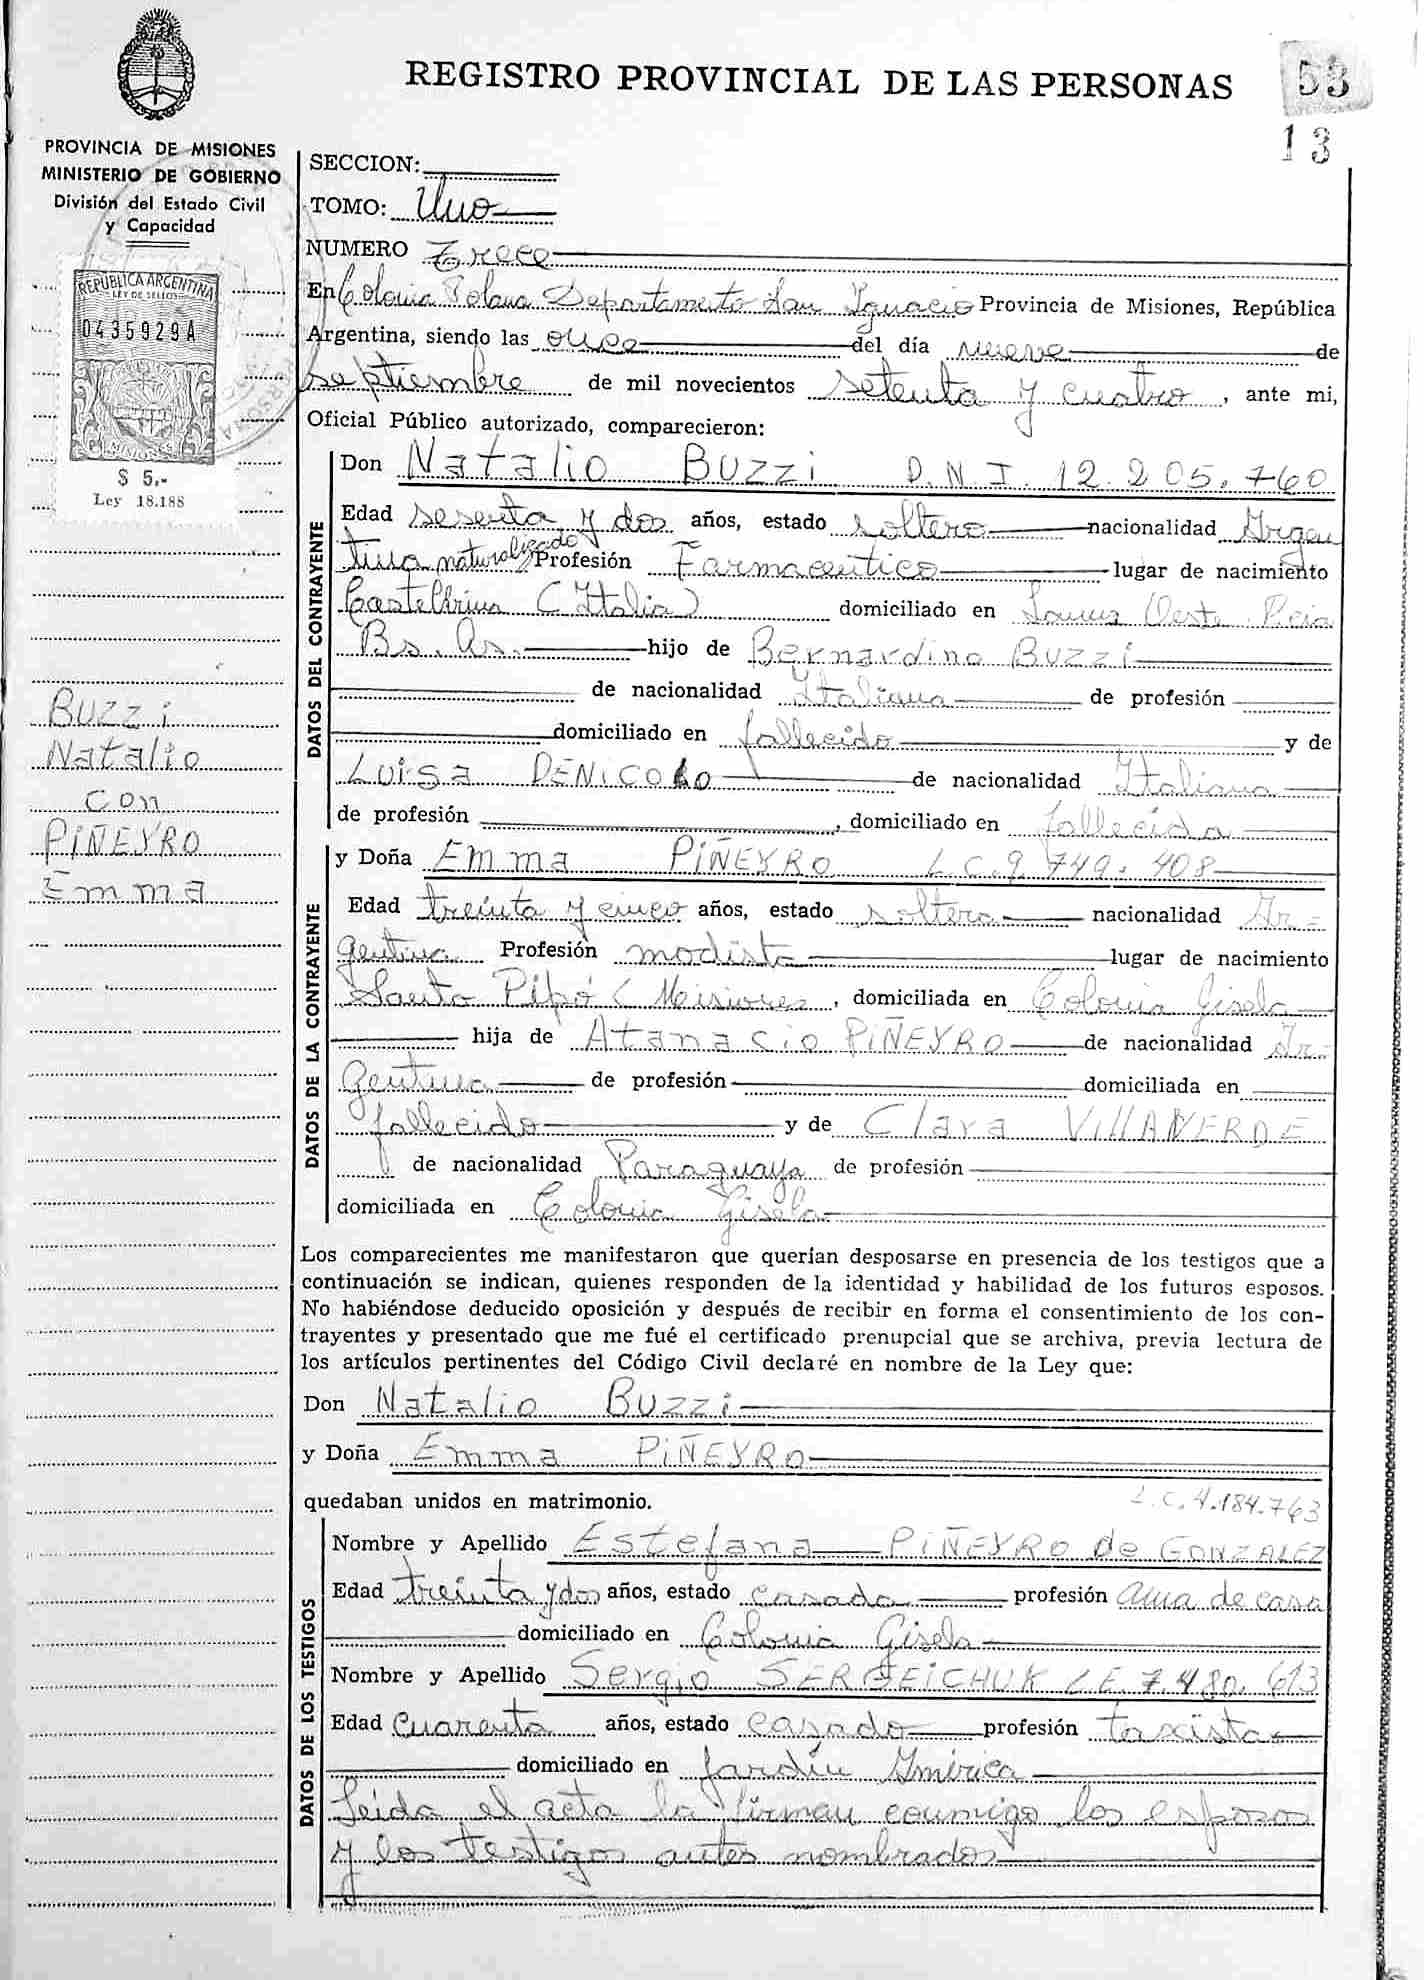 REGISTRO PROVINCIAL DE LAS PERSONAS
53
13
PROVINCIA DE MISIONES
MINISTERIO DE GOBIERNO
División del Estado Civil
y Capacidad
REPUBLICA ARGENTINA
LEY DE SELLOS
0435929A
MISIONES
$ 5.-
Ley 18.188
Buzzi
Natalio
con
PiÑEYRO
Emma
SECCION:
TOMO: Uno
NUMERO Trece
En Colonia Polana Departamento San Ignacio Provincia de Misiones, República
Argentina, siendo las once del día nueve de
septiembre de mil novecientos setenta y cuatro, ante mi,
Oficial Público autorizado, comparecieron:
DATOS DEL CONTRAYENTE
Don Natalio Buzzi D.N.I. 12.205.760
Edad sesenta y dos años, estado soltero nacionalidad Argen
tina naturalizado Profesión Farmaceutico lugar de nacimiento
(Italia) domiciliado en Oeste Pcia
Bs. As. hijo de Bernardino Buzzi
de nacionalidad Italiana de profesión
domiciliado en fallecido y de
Luisa DENiCOLO de nacionalidad Italiana
de profesión , domiciliado en fallecida
DATOS DE LA CONTRAYENTE
y Doña Emma PiÑEYRO L.C. 9.749.408
Edad treinta y cinco años, estado soltera nacionalidad Ar-
gentina Profesión modista lugar de nacimiento
Santo Pipó (Misiones, domiciliada en Colonia Gisela
hija de Atanacio PiÑEYRO de nacionalidad Ar-
gentina de profesión domiciliada en
fallecido y de Clara VillAVERDE
de nacionalidad Paraguaya de profesión
domiciliada en Colonia Gisela
Los comparecientes me manifestaron que querían desposarse en presencia de los testigos que a
continuación se indican, quienes responden de la identidad y habilidad de los futuros esposos.
No habiéndose deducido oposición y después de recibir en forma el consentimiento de los con-
trayentes y presentado que me fué el certificado prenupcial que se archiva, previa lectura de
los artículos pertinentes del Código Civil declaré en nombre de la Ley que:
Don Natalio Buzzi
y Doña Emma PiÑEYRO
quedaban unidos en matrimonio.
L.C. 4.184.763
DATOS DE LOS TESTIGOS
Nombre y Apellido Estefana PiÑEYRO de GONZALEZ
Edad treinta y dos años, estado casada profesión ama de casa
domiciliado en Colonia Gisela
Nombre y Apellido Sergio SERGEICHUK L.E. 7.480.613
Edad Cuarenta años, estado casado profesión taxista
domiciliado en Jardín América
Leida el acta la firman conmigo los esposos
y los testigos antes nombrados